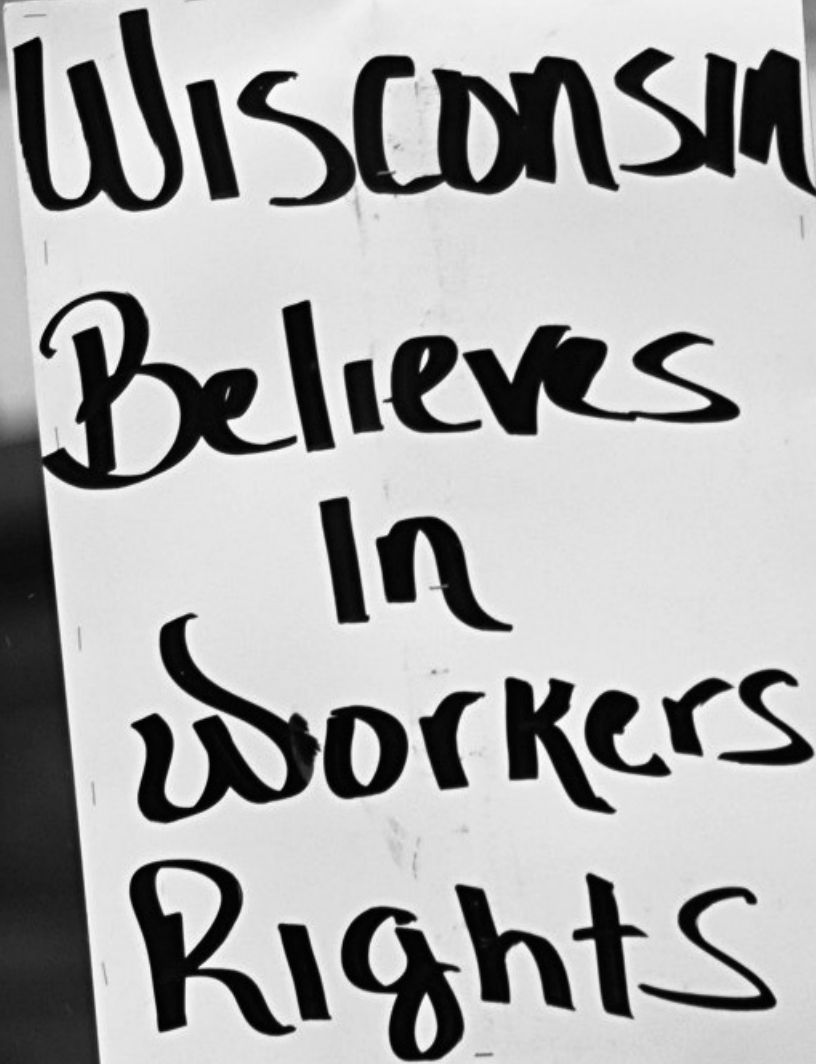 Wisconsin
Believes
In
Workers
Rights